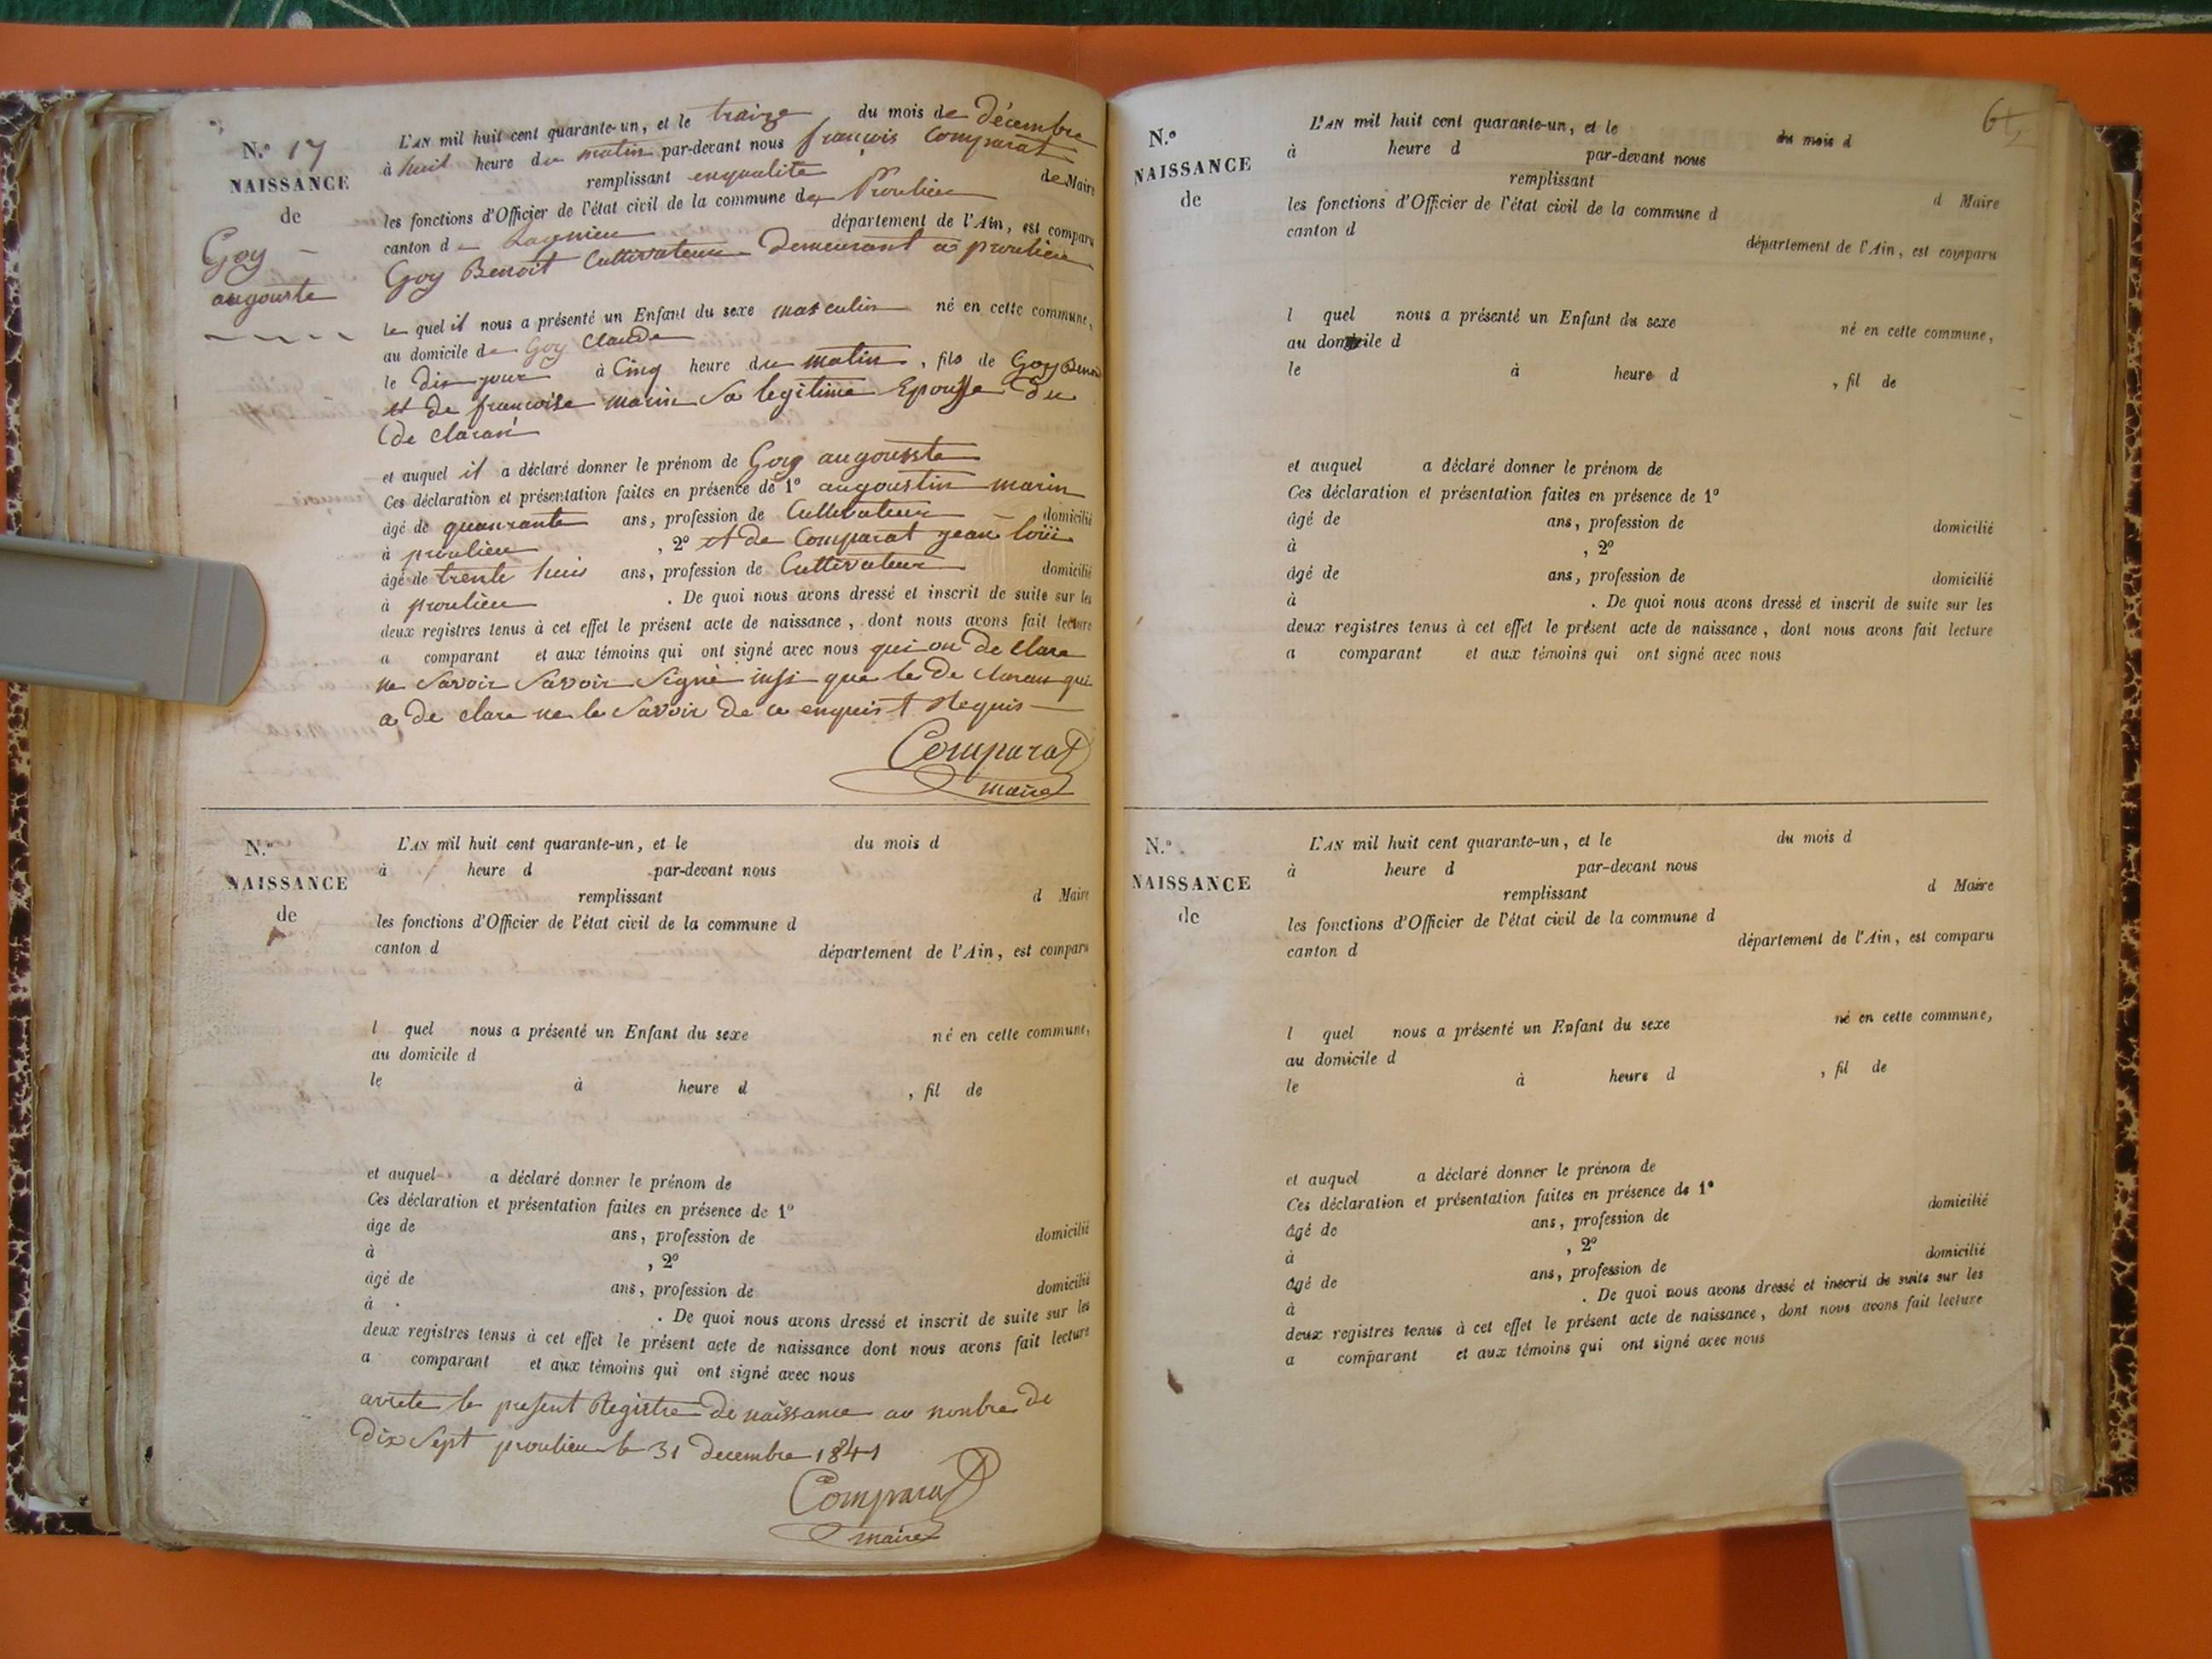 N.o 17
NAISSANCE
de
Goy
augouste
L'AN mil huit cent quarante-un, et le traize du mois de décembre
à huit heure du matin par-devant nous françois Comparat
remplissant enqualite de Maire
les fonctions d'Officier de l'état civil de la commune de Proulieu
canton de Lagnieu département de l'Ain, est comparu
Goy Benoit Cultivateur Demeurant a proulieu
le quel il nous a présenté un Enfant du sexe masculin né en cette commune,
au domicile de Goy Claude
le dis jour à Cinq heure du matin, fils de Goy Benoit
et de francoise marin Sa legitime Epousse Du
De claran
et auquel il a déclaré donner le prénom de Goy augousste
Ces déclaration et présentation faites en présence de 1o augoustin marin
âgé de quanrante ans, profession de Cultivateur domicilié
à proulieu, 2o et de Comparat jean loüi
âgé de trente huis ans, profession de Cultivateur domicilié
à proulieu. De quoi nous avons dressé et inscrit de suite sur les
deux registres tenus à cet effet le présent acte de naissance, dont nous avons fait lecture
a comparant et aux témoins qui ont signé avec nous qui on De clare
ne Savoir Savoir Signé insi que le De claran qui
a De clare ne le Savoir De ce enquis et Requis
Comparat
maire
N.o
NAISSANCE
de
L'AN mil huit cent quarante-un, et le du mois d
à heure d par-devant nous
remplissant d Maire
les fonctions d'Officier de l'état civil de la commune d
canton d département de l'Ain, est comparu
l quel nous a présenté un Enfant du sexe né en cette commune,
au domicile d
le à heure d , fil de
et auquel a déclaré donner le prénom de
Ces déclaration et présentation faites en présence de 1o
âge de ans, profession de domicilié
à , 2o
âgé de ans, profession de domicilié
à . De quoi nous avons dressé et inscrit de suite sur les
deux registres tenus à cet effet le présent acte de naissance dont nous avons fait lecture
a comparant et aux témoins qui ont signé avec nous
arrete le present Registre De naissance au nonbre De
Dix Sept proulieu le 31 Decembre 1841
Comparat
maire
N.o
NAISSANCE
de
L'AN mil huit cent quarante-un, et le du mois d
à heure d par-devant nous
remplissant d Maire
les fonctions d'Officier de l'état civil de la commune d
canton d département de l'Ain, est comparu
l quel nous a présenté un Enfant du sexe né en cette commune,
au domicile d
le à heure d , fil de
et auquel a déclaré donner le prénom de
Ces déclaration et présentation faites en présence de 1o
âgé de ans, profession de domicilié
à , 2o
âgé de ans, profession de domicilié
à . De quoi nous avons dressé et inscrit de suite sur les
deux registres tenus à cet effet le présent acte de naissance, dont nous avons fait lecture
a comparant et aux témoins qui ont signé avec nous
N.o
NAISSANCE
de
L'AN mil huit cent quarante-un, et le du mois d
à heure d par-devant nous
remplissant d Maire
les fonctions d'Officier de l'état civil de la commune d
canton d département de l'Ain, est comparu
l quel nous a présenté un Enfant du sexe né en cette commune,
au domicile d
le à heure d , fil de
et auquel a déclaré donner le prénom de
Ces déclaration et présentation faites en présence de 1o
âgé de ans, profession de domicilié
à , 2o
âgé de ans, profession de domicilié
à . De quoi nous avons dressé et inscrit de suite sur les
deux registres tenus à cet effet le présent acte de naissance, dont nous avons fait lecture
a comparant et aux témoins qui ont signé avec nous